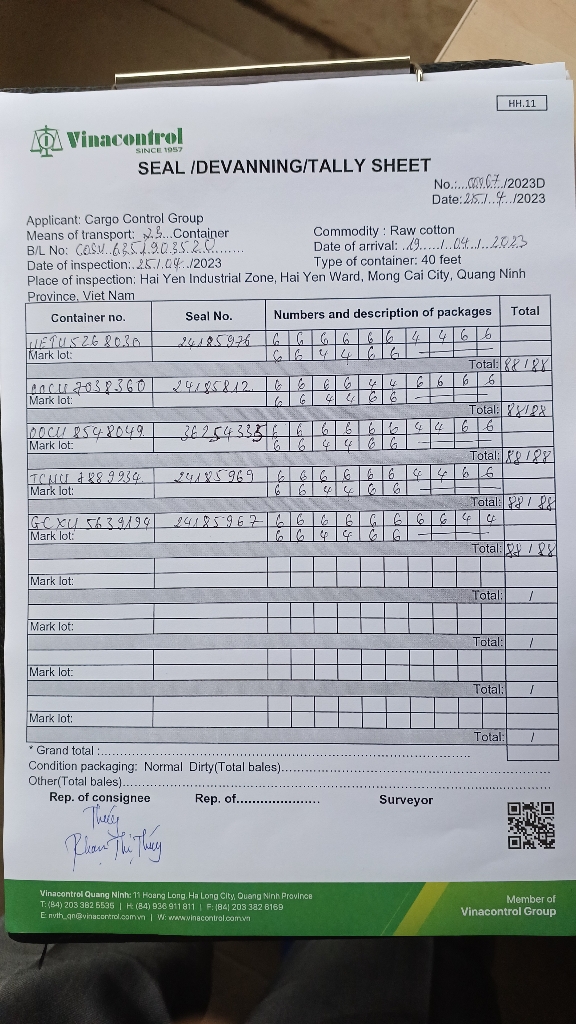 HH.11
Vinacontrol
SINCE 1957
SEAL /DEVANNING/TALLY SHEET
No.:.../2023D
Date: 25/.4./2023
Applicant: Cargo Control Group
Means of transport: 23 Container
Commodity : Raw cotton
B/L No: COSU 6351903520
Date of arrival: 19/04/2023
Date of inspection: 25/04/2023
Type of container: 40 feet
Place of inspection: Hai Yen Industrial Zone, Hai Yen Ward, Mong Cai City, Quang Ninh
Province, Viet Nam
Container no. Seal No. Numbers and description of packages Total
24185976 6 6 6 6 6 6 4 4 6 6
Mark lot: 6 6 4 4 6 6
Total: 88/88
7038360 24185812 6 6 6 6 4 4 6 6 6 6
Mark lot: 6 6 4 4 6 6
Total: 88/88
OOCU 8548049 36254335 6 6 6 6 6 6 4 4 6 6
Mark lot: 6 6 4 4 6 6
Total: 88/88
24185969 6 6 6 6 6 6 4 4 6 6
Mark lot: 6 6 4 4 6 6
Total: 88/88
GCXU 5639194 24185967 6 6 6 6 6 6 6 6 4 4
Mark lot: 6 6 4 4 6 6
Total: 88/88
Mark lot:
Total: /
Mark lot:
Total: /
Mark lot:
Total: /
Mark lot:
Total: /
* Grand total :
Condition packaging: Normal Dirty(Total bales)
Other(Total bales)
Rep. of consignee Rep. of Surveyor
Thúy
Phạm Thị Thúy
Vinacontrol Quang Ninh: 11 Hoang Long, Ha Long City, Quang Ninh Province
T:(84) 203 382 5535 | H:(84) 936 911 811 | F:(84) 203 382 6169
E: nvth_qn@vinacontrol.com.vn | W: www.vinacontrol.com.vn
Member of
Vinacontrol Group